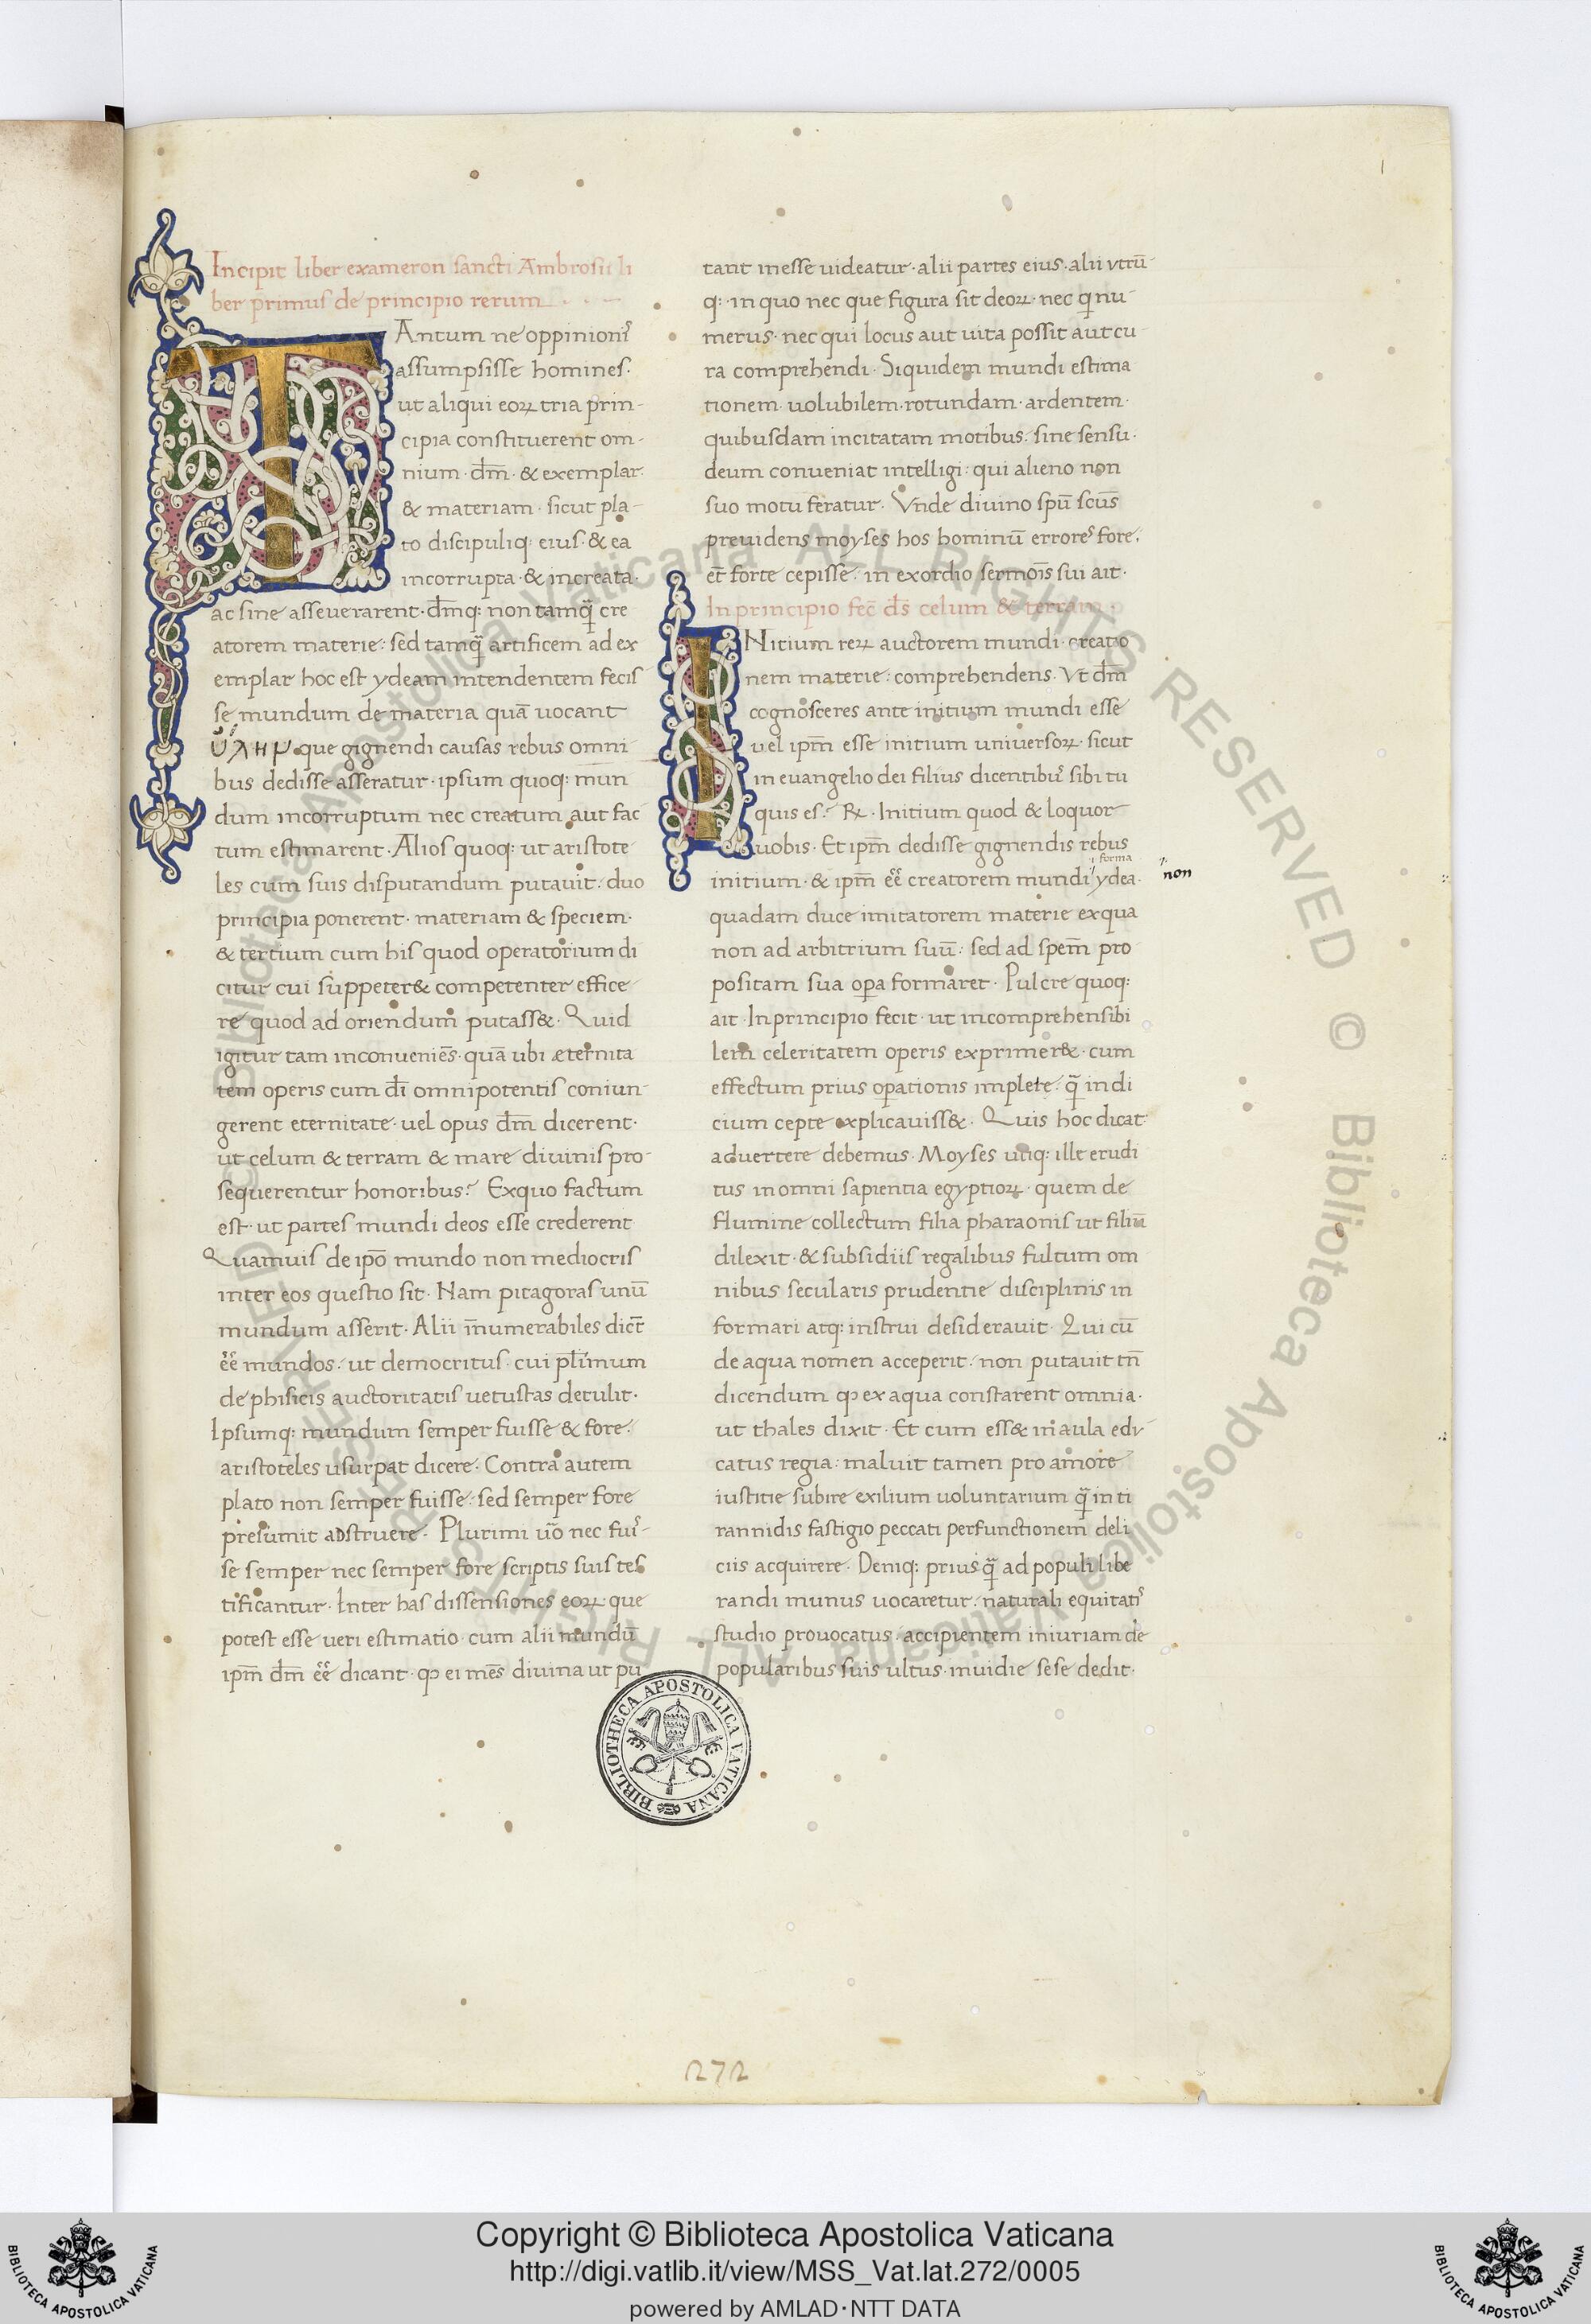 1
Incipit liber exameron sancti Ambrosii li
ber primus de principio rerum
TAntum ne oppinionis
assumpsisse homines·
ut aliqui eoꝝ tria prin-
cipia constituerent om-
nium· dm̄· & exemplar·
& materiam· sicut pla-
to discipuliq: eius· & ea
incorrupta· & increata·
ac sine asseuerarent· dm̄q: non tamq̄ cre
atorem materie: sed tamq̄ artificem ad ex
emplar hoc est ydeam intendentem fecis
se mundum de materia quā uocant
ὕλην· que gignendi causas rebus omni
bus dedisse asseratur· ipsum quoq: mun
dum incorruptum nec creatum aut fac
tum estimarent· Alios quoq: ut aristote
les cum suis disputandum putauit: duo
principia ponerent· materiam & speciem·
& tertium cum his quod operatorium di
citur cui suppeter& competenter effice
re quod ad oriendum putass&· Quid
igitur tam inconueniēs· quā ubi æternita
tem operis cum dī omnipotentis coniun-
gerent eternitate· uel opus dm̄ dicerent·
ut celum & terram & mare diuinis pro-
sequerentur honoribus? Exquo factum
est· ut partes mundi deos esse crederent
Quamuis de ipō mundo non mediocris
inter eos questio sit· Nam pitagoras unū
mundum asserit· Alii īnumerabiles dict̄
ēē mundos: ut democritus· cui pl̄imum
de phisicis auctoritatis uetustas detulit·
Ipsumq: mundum semper fuisse & fore:
aristoteles usurpat dicere: Contra autem
plato non semper fuisse: sed semper fore
presumit adstruere· Plurimi uō nec fuis-
se semper nec semper fore scriptis suis tes
tificantur· Inter has dissensiones eoꝝ que
potest esse ueri estimatio· cum alii mundū
ipm̄ dm̄ ēē dicant· ꝙ ei mēs diuina ut pu
tant inesse uideatur· alii partes eius· alii vtrū-
q: in quo nec que figura sit deoꝝ· nec qi nu-
merus· nec qui locus aut uita possit aut cu-
ra comprehendi· Siquidem mundi estima
tionem· uolubilem· rotundam· ardentem·
quibusdam incitatam motibus· sine sensu·
deum conueniat intelligi: qui alieno non
suo motu feratur· Vnde diuino spū scūs
preuidens moyses hos hominū errores fore·
et̄ forte cepisse: in exordio sermoīs sui ait·
In principio fec̄ ds̄ celum & terram·
INitium reꝝ auctorem mundi· creatio
nem materie: comprehendens· Vt dm̄
cognosceres ante initium mundi esse
uel ipm̄ esse initium uniuersoꝝ· sicut
in euangelio dei filius dicentibus sibi tu
quis es? ℞· Initium quod & loquor
uobis· Et ipm̄ dedisse gignendis rebus
forma
initium· & ipm̄ ēē creatorem mundi ydea·
non
quadam duce imitatorem materie exqua
non ad arbitrium suū: sed ad spem̄ pro
positam sua opa formaret· Pulcre quoq:
ait· In principio fecit· ut incomprehensibi
lem celeritatem operis exprimer&· cum
effectum prius opationis implete: q̄ indi
cium cepte explicauiss&· Quis hoc dicat·
aduertere debemus· Moyses utiq: ille erudi
tus in omni sapientia egyptioꝝ· quem de
flumine collectum filia pharaonis ut filiū
dilexit· & subsidiis regalibus fultum om
nibus secularis prudentie disciplinis in
formari atq: instrui desiderauit· Qui cū
de aqua nomen acceperit: non putauit tn̄
dicendum ꝙ ex aqua constarent omnia·
ut thales dixit· Et cum ess& in aula edu
catus regia: maluit tamen pro amore
iustitie subire exilium uoluntarium q̄ in ti
rannidis fastigio peccati perfunctionem deli
ciis acquirere· Deniq: prius q̄ ad populi libe
randi munus uocaretur: naturali equitatis
studio prouocatus· accipientem iniuriam de
popularibus suis ultus· inuidie sese dedit·
BIBLIOTHECA APOSTOLICA VATICANA
272
© Biblioteca Apostolica Vaticana ALL RIGHTS RESERVED © Biblioteca Apostolica Vaticana ALL RIGHTS RESERVED
Copyright © Biblioteca Apostolica Vaticana
http://digi.vatlib.it/view/MSS_Vat.lat.272/0005
powered by AMLAD·NTT DATA
BIBLIOTECA APOSTOLICA VATICANA
BIBLIOTECA APOSTOLICA VATICANA